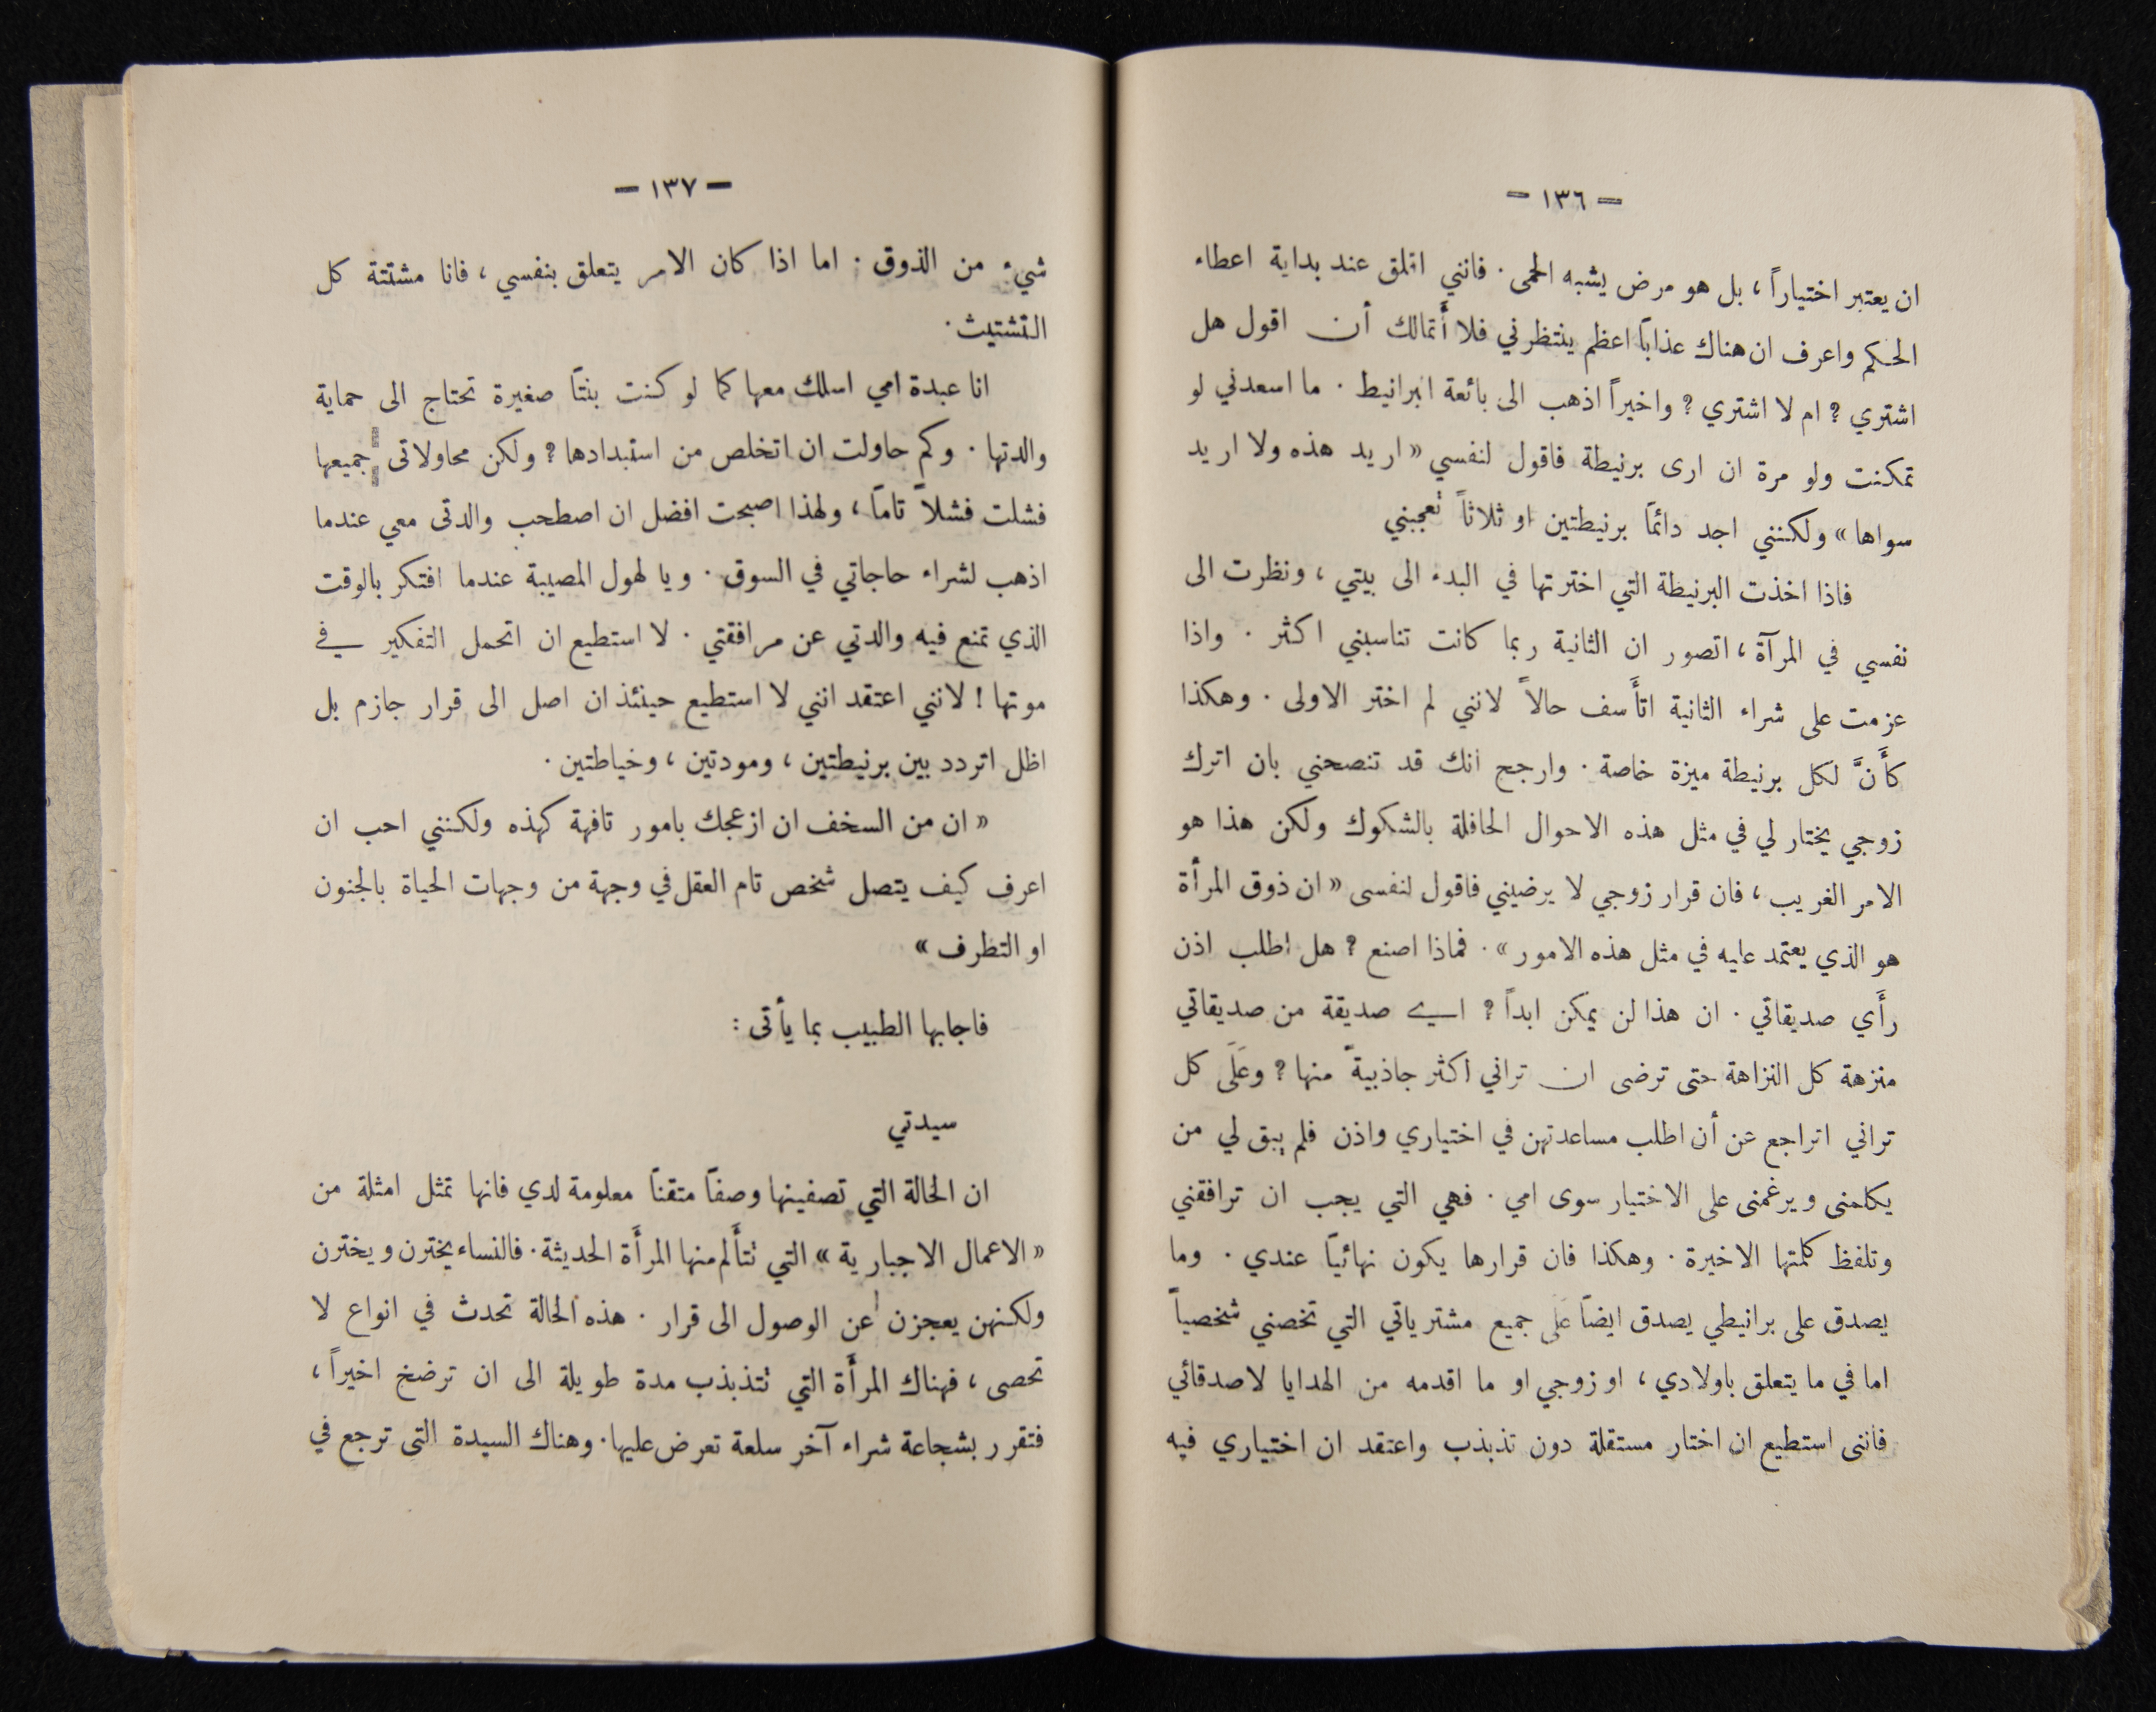 — ١٣٦ —
ان يعتبر اختياراً ، بل هو مرض يشبه الحمى . فانني اقلق عند بداية اعطاء
الحكم واعرف ان هناك عذاباً اعظم ينتظرني فلا أَتمالك أن اقول هل
اشتري ? ام لا اشتري ? واخيراً اذهب الى بائعة البرانيط . ما اسعدني لو
تمكنت ولو مرة ان ارى برنيطة فاقول لنفسي « اريد هذه ولا اريد
سواها » ولكنني اجد دائماً برنيطتين او ثلاثاً تُعجبني
فاذا اخذت البرنيطة التي اخترتها في البدء الى بيتي ، ونظرت الى
نفسي في المرآة ، اتصور ان الثانية ربما كانت تناسبني اكثر . واذا
عزمت على شراء الثانية اتأَسف حالاً لانني لم اختر الاولى . وهكذا
كأَنَّ لكل برنيطة ميزة خاصة . وارجح انك قد تنصحني بان اترك
زوجي يختار لي في مثل هذه الاحوال الحافلة بالشكوك ولكن هذا هو
الامر الغريب ، فان قرار زوجي لا يرضيني فاقول لنفسى « ان ذوق المرأة
هو الذي يعتمد عليه في مثل هذه الامور » . فماذا اصنع ? هل اطلب اذن
رأَي صديقاتي . ان هذا لن يمكن ابداً ? اي صديقة من صديقاتي
منزهة كل النزاهة حتى ترضى ان تراني اكثر جاذبيةً منها ? وعَلَى كل
تراني اتراجع عن أن اطلب مساعدتهن في اختياري واذن فلم يبق لي من
يكلمنى ويرغمنى على الاختيار سوى امي . فهي التي يجب ان ترافقني
وتلفظ كلمتها الاخيرة . وهكذا فان قرارها يكون نهائياً عندي . وما
يصدق على برانيطي يصدق ايضاً عَلَى جميع مشترياتي التي تخصني شخصياً
اما في ما يتعلق باولادي ، او زوجي او ما اقدمه من الهدايا لاصدقائي
فاننى استطيع ان اختار مستقلة دون تذبذب واعتقد ان اختياري فيه
— ١٣٧ —
شيء من الذوق . اما اذا كان الامر يتعلق بنفسي ، فانا مشتتة كل
التشتيت .
انا عبدة امي اسلك معها كما لو كنت بنتاً صغيرة تحتاج الى حماية
والدتها . وكم حاولت ان اتخلص من استبدادها ? ولكن محاولاتى جميعها
فشلت فشلاً تاماً ، ولهذا اصبحت افضل ان اصطحب والدتى معي عندما
اذهب لشراء حاجاتي في السوق . ويا لهول المصيبة عندما افتكر بالوقت
الذي تمنع فيه والدتي عن مرافقتي . لا استطيع ان اتحمل التفكير في
موتها ! لانني اعتقد انني لا استطيع حينئذ ان اصل الى قرار جازم بل
اظل اتردد بين برنيطتين ، ومودتين ، وخياطتين .
« ان من السخف ان ازعجك بامور تافهة كهذه ولكنني احب ان
اعرف كيف يتصل شخص تام العقل في وجهة من وجهات الحياة بالجنون
او التطرف »
فاجابها الطبيب بما يأتى :
سيدتي
ان الحالة التي تصفينها وصفاً متقناً معلومة لدي فانها تمثل امثلة من
« الاعمال الاجبارية » التي تتأَلم منها المرأَة الحديثة . فالنساء يخترن ويخترن
ولكنهن يعجزن عن الوصول الى قرار . هذه الحالة تحدث في انواع لا
تحصى ، فهناك المرأَة التي تتذبذب مدة طويلة الى ان ترضخ اخيراً ،
فتقرر بشجاعة شراء آخر سلعة تعرض عليها . وهناك السيدة التى ترجع في